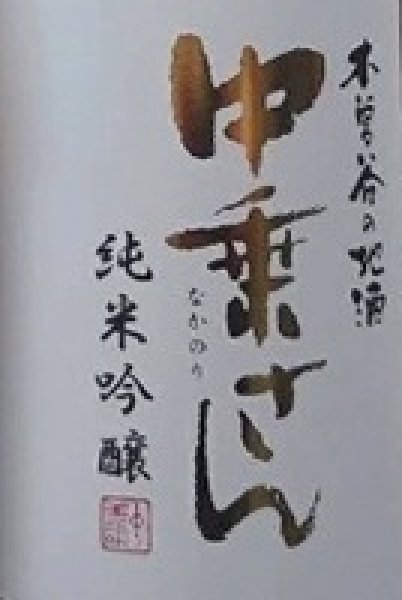 木曽谷の地酒
中乗さん
なかのり
純米吟醸